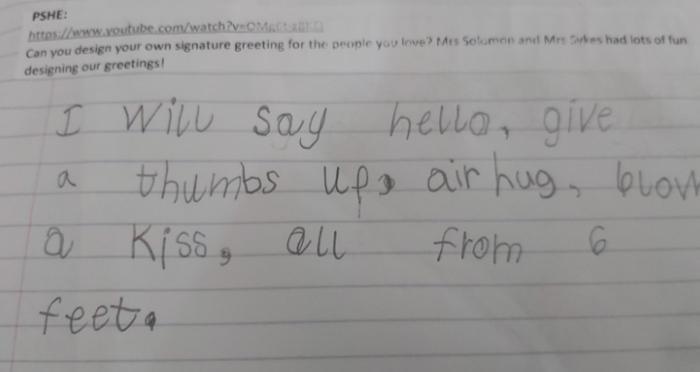 PSHE:
https://www.youtube.com/watch?v=
Can you design your own signature greeting for the people you love? Mrs Solomon and Mrs Sykes had lots of fun
designing our greetings!
I will say hello, give
a thumbs up, air hug, blow
a kiss, all from 6
feet.